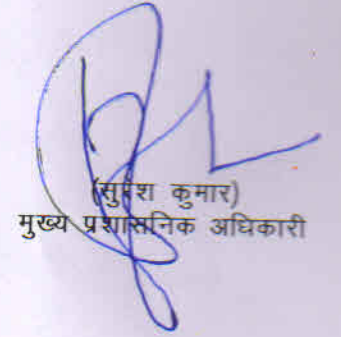 (सुरेश कुमार)
मुख्य प्रशासनिक अधिकारी